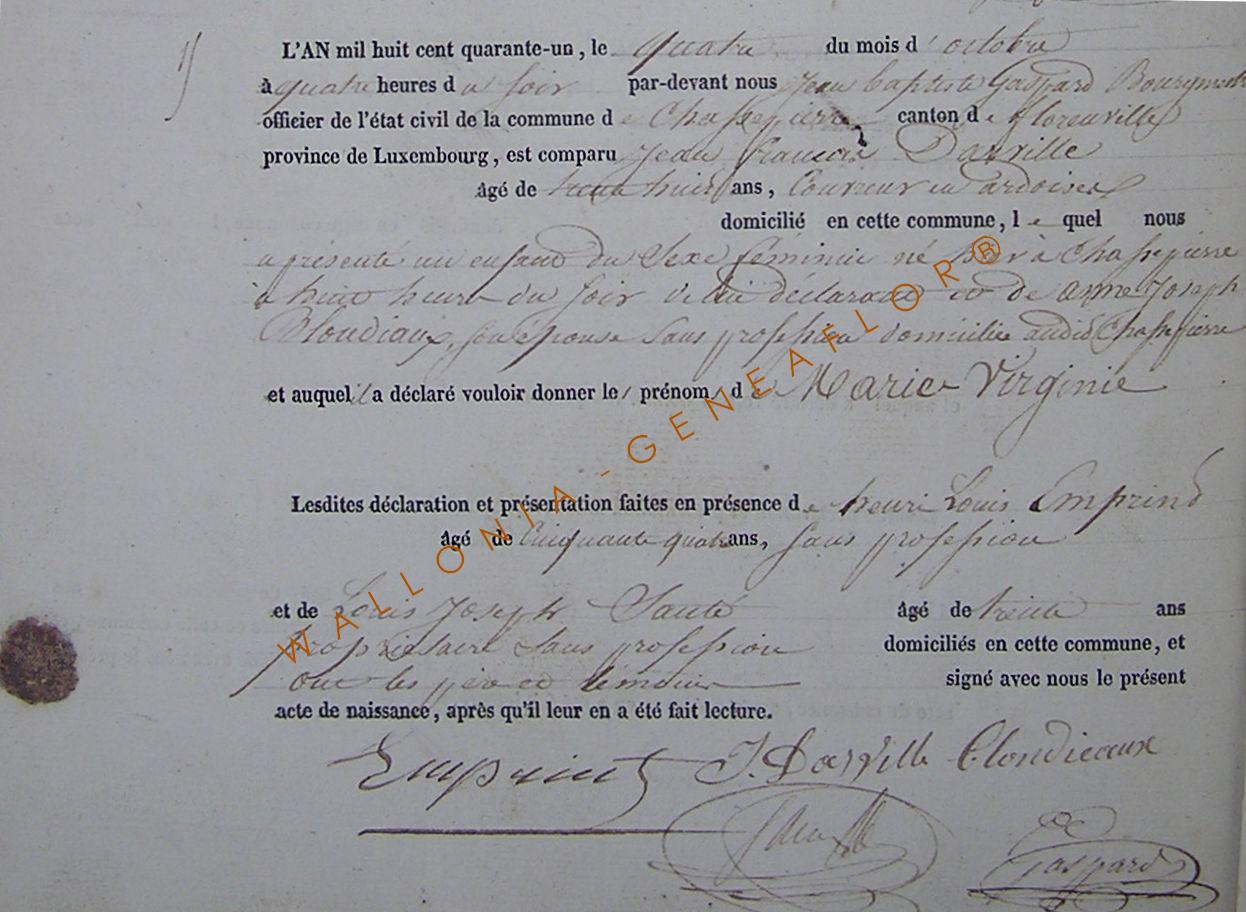 L'AN mil huit cent quarante-un, le quatre du mois d'octobre
à quatre heures du soir par-devant nous Jean baptiste Gaspard Bourgmestre
officier de l'état civil de la commune de Chassepierre canton de florenville
province de Luxembourg, est comparu Jean françois Dasville
âgé de trente huit ans, Couvreur en ardoises
domicilié en cette commune, le quel nous
a présenté un enfant du Sexe féminin né hier à Chassepierre
à huit heures du soir de lui déclarant et de anne Joseph
Clondiaux, son épouse sans profession domiciliée audit Chassepierre
et auquel il a déclaré vouloir donner les prénoms de Marie Virginie
Lesdites déclaration et présentation faites en présence de henri Louis Emprint
âgé de Cinquante quatre ans, sans profession
et de Louis Joseph Santé âgé de trente ans
propriétaire sans profession domiciliés en cette commune, et
ont les père et témoins signé avec nous le présent
acte de naissance, après qu'il leur en a été fait lecture.
Emprint J. Dasville Clondieaux
Gaspard
WALLONIA-GENEAFLOR®